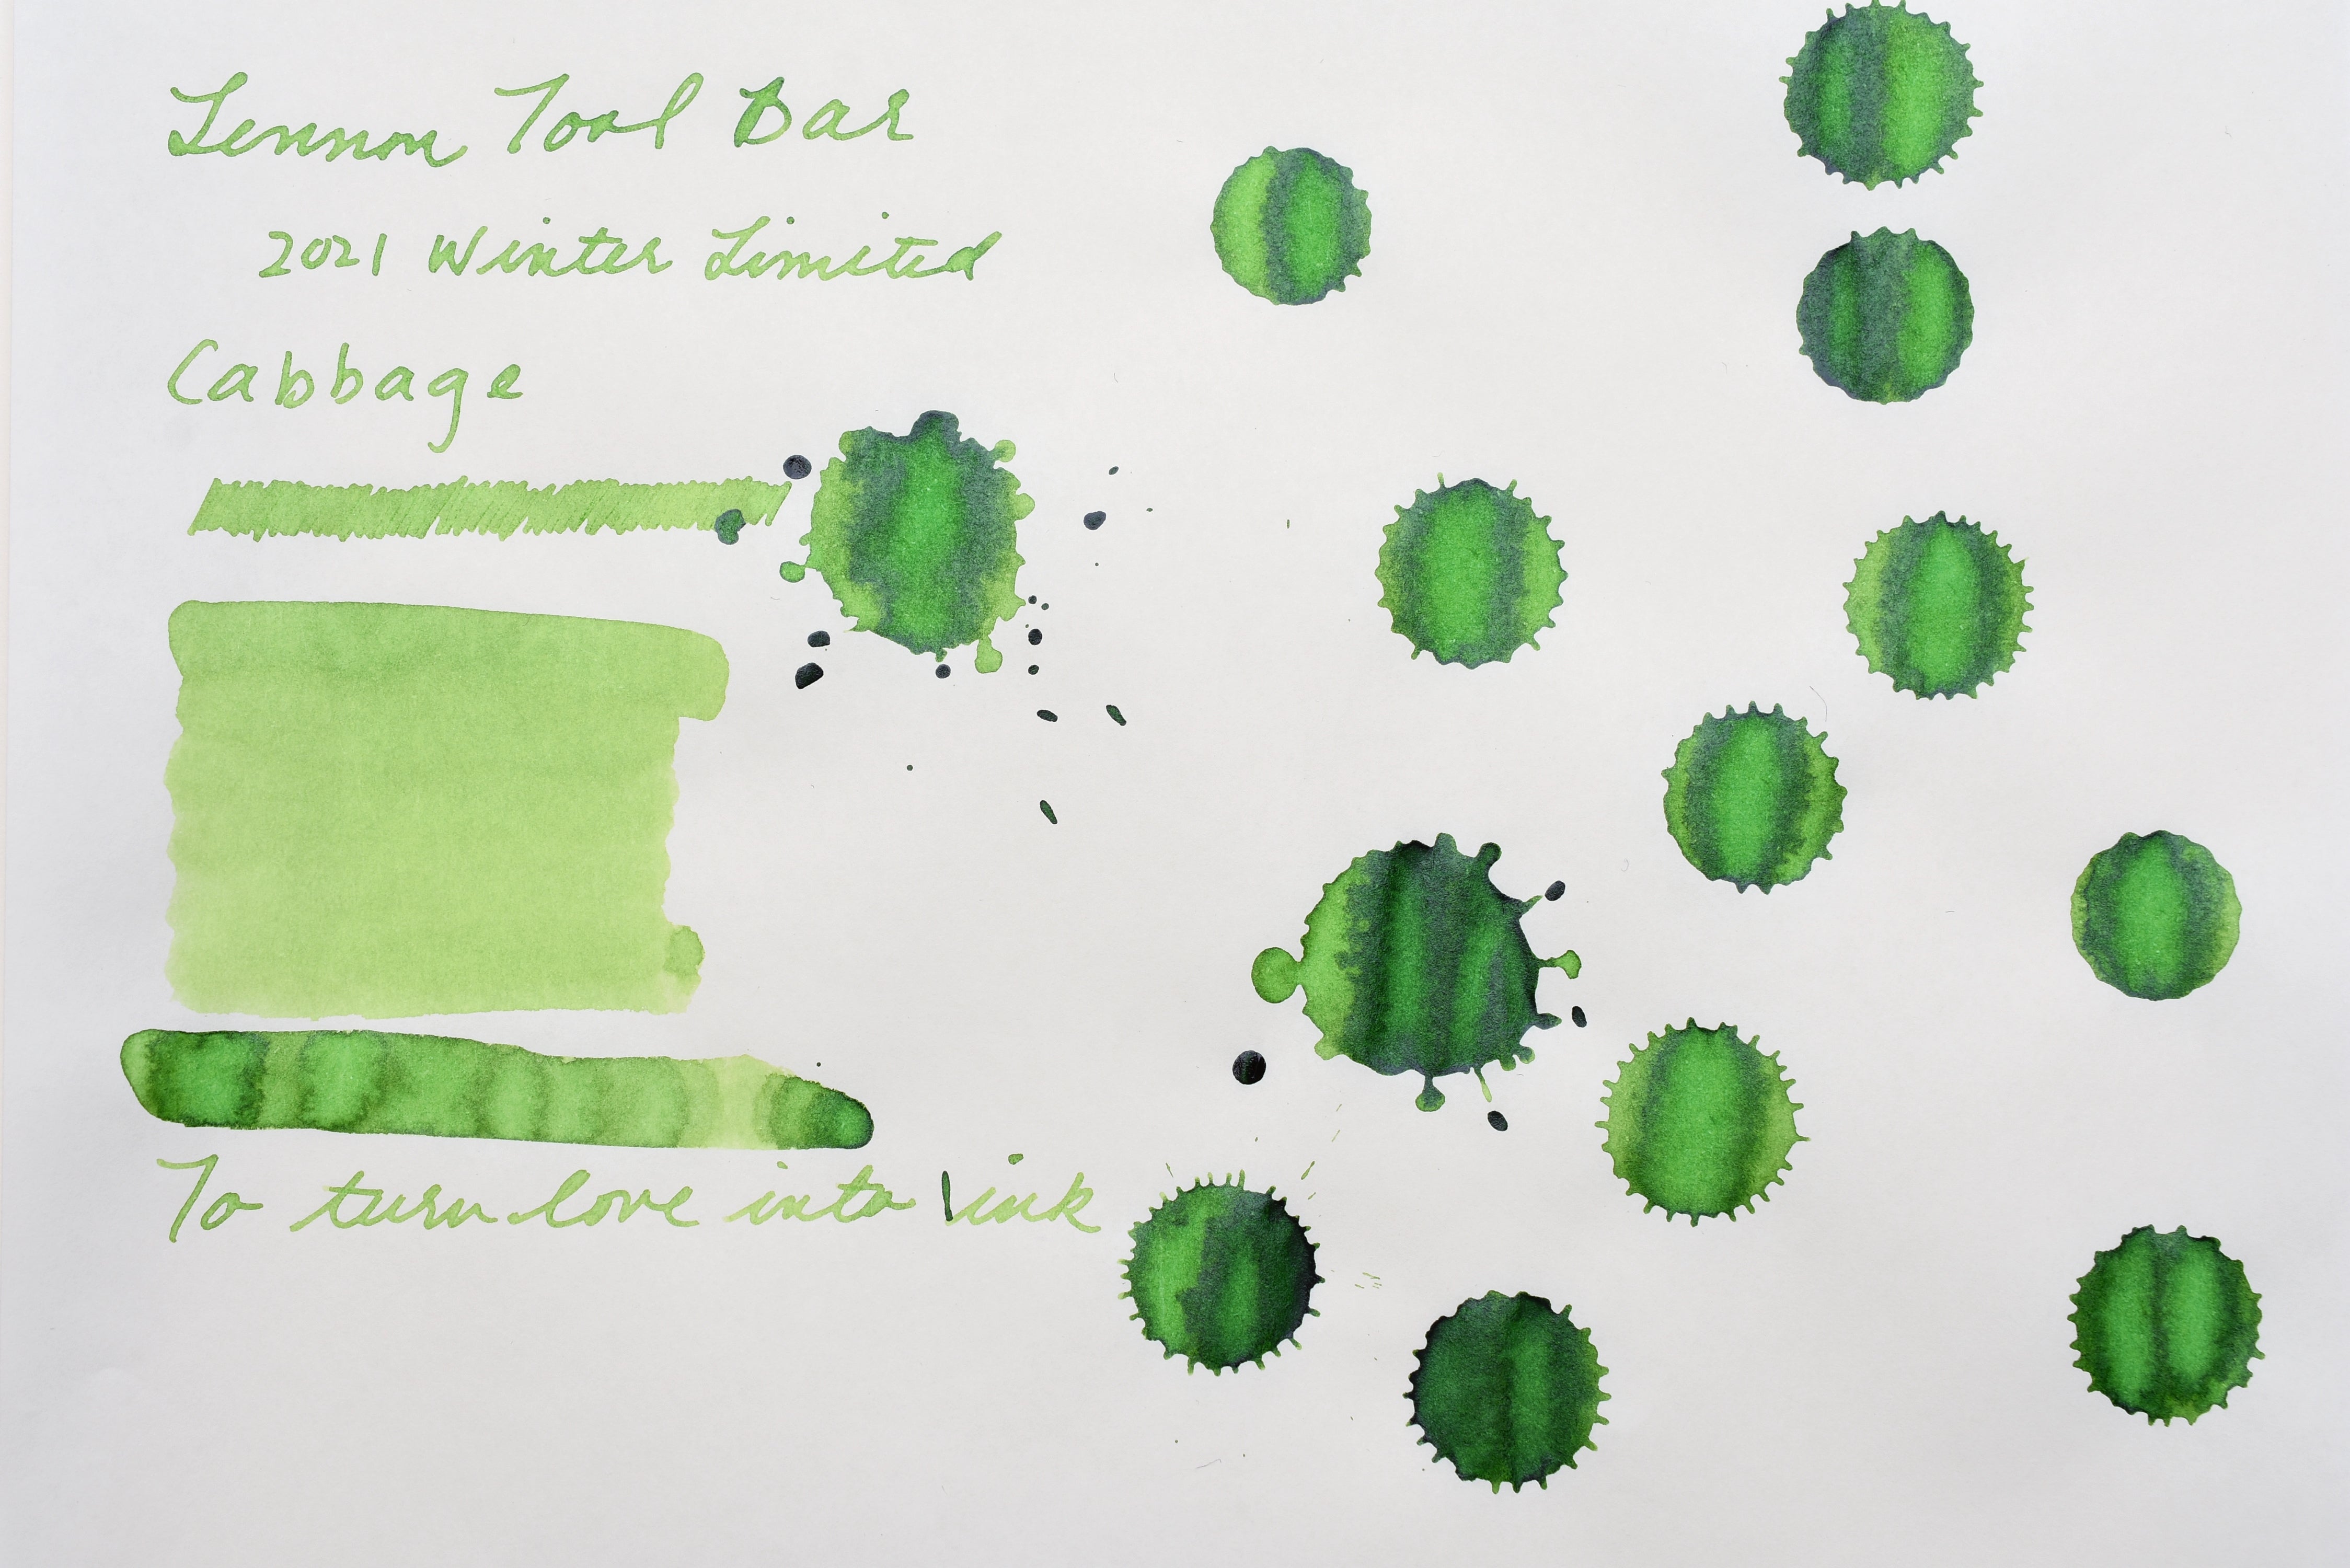 Lennon Tool Bar
2021 Winter Limited
Cabbage
To turn love into ink